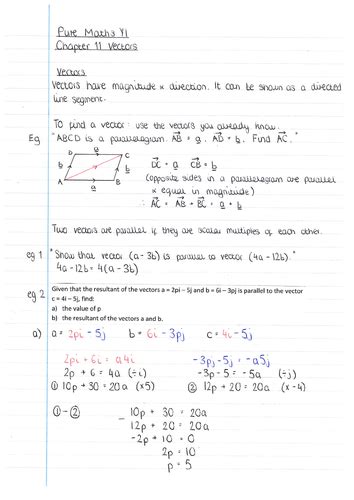 Pure Maths Y1
Chapter 11 Vectors
Vectors
Vectors have magnitude & direction. It can be shown as a directed
line segment.
To find a vector: use the vectors you already know.
Eg "ABCD is a parallelogram. AB = a. AD = b. Find AC."
D a C
b b
A a B
DC = a CB = b
(opposite sides in a parallelogram are parallel
& equal in magnitude)
∴ AC = AB + BC = a + b
Two vectors are parallel if they are scalar multiples of each other.
eg 1 "Show that vector (a - 3b) is parallel to vector (4a - 12b)."
4a - 12b = 4(a - 3b)
eg 2 Given that the resultant of the vectors a = 2pi – 5j and b = 6i – 3pj is parallel to the vector
c = 4i – 5j, find:
a) the value of p
b) the resultant of the vectors a and b.
a) a = 2pi - 5j b = 6i - 3pj c = 4i - 5j
2pi + 6i = a4i -3pj - 5j = -a5j
2p + 6 = 4a (÷i) -3p - 5 = -5a (÷j)
① 10p + 30 = 20a (x5) ② 12p + 20 = 20a (x -4)
① - ② 10p + 30 = 20a
- 12p + 20 = 20a
-2p + 10 = 0
2p = 10
p = 5